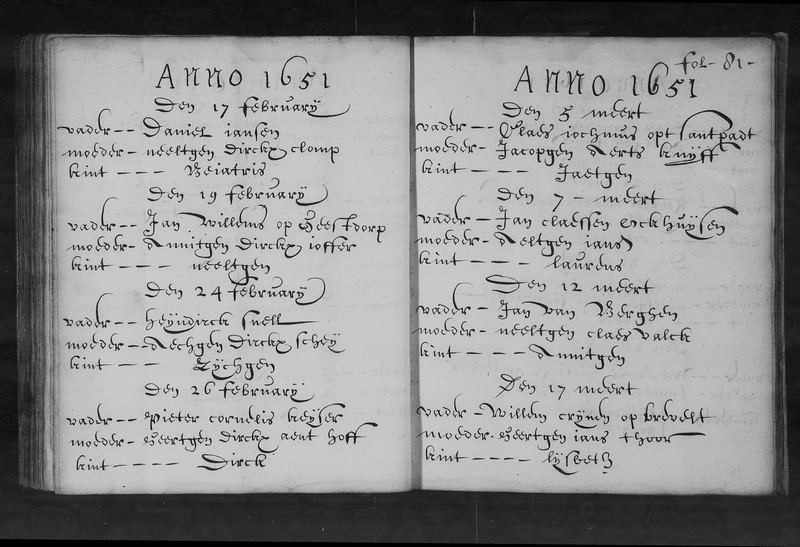 Anno 1651
Den 17 february
vader -- Daniel iansen
moeder - neeltgen dirckx clomp
kint --- Beiatris
Den 19 february
vader -- Jan Willems op Geestdorp
moeder - Annitgen Dirckx ioffer
kint --- neeltgen
Den 24 february
vader -- heyndirck snell
moeder - Aechgen Dirckx schey
kint --- Zychgen
Den 26 february
vader -- Pieter cornelis keyser
moeder - Geertgen Dirckx aent hoff
kint ---- Dirck
fol- 81-
Anno 1651
Den 5 meert
vader -- Claes iochmus opt santpadt
moeder - Jacopgen Aerts kruyff
kint ---- Jaetgen
Den 7 - meert
vader - Jan claessen Ockhuysen
moeder - Aeltgen ians
kint ---- laurens
Den 12 meert
vader -- Jan van Berghen
moeder - neeltgen claes valck
kint ---- Annitgen
Den 17 meert
vader - Willem crynen op brevelt
moeder - Geertgen ians thoor
kint ---- lysbeth